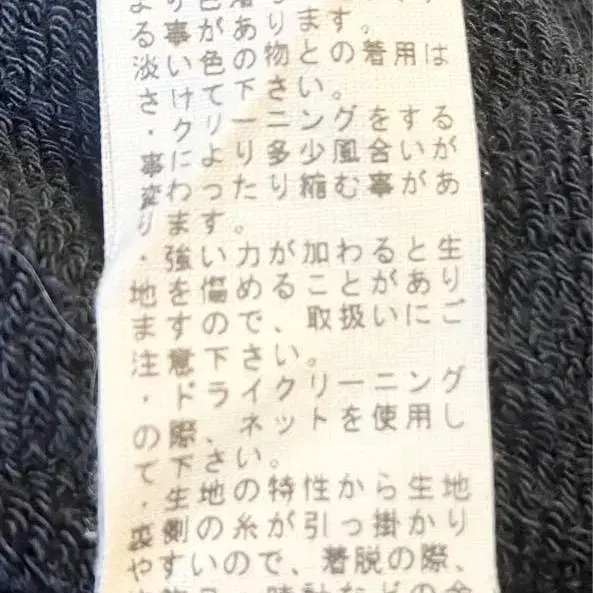 る事があります。
淡い色の物との着用は
さけて下さい。
・クリーニングをする
事により多少風合いが
変わったり縮む事があ
ります。
・強い力が加わると生
地を傷めることがあり
ますので、取扱いにご
注意下さい。
・ドライクリーニング
の際、ネットを使用し
て下さい。
・生地の特性から生地
裏側の糸が引っ掛かり
やすいので、着脱の際、
時計などの金